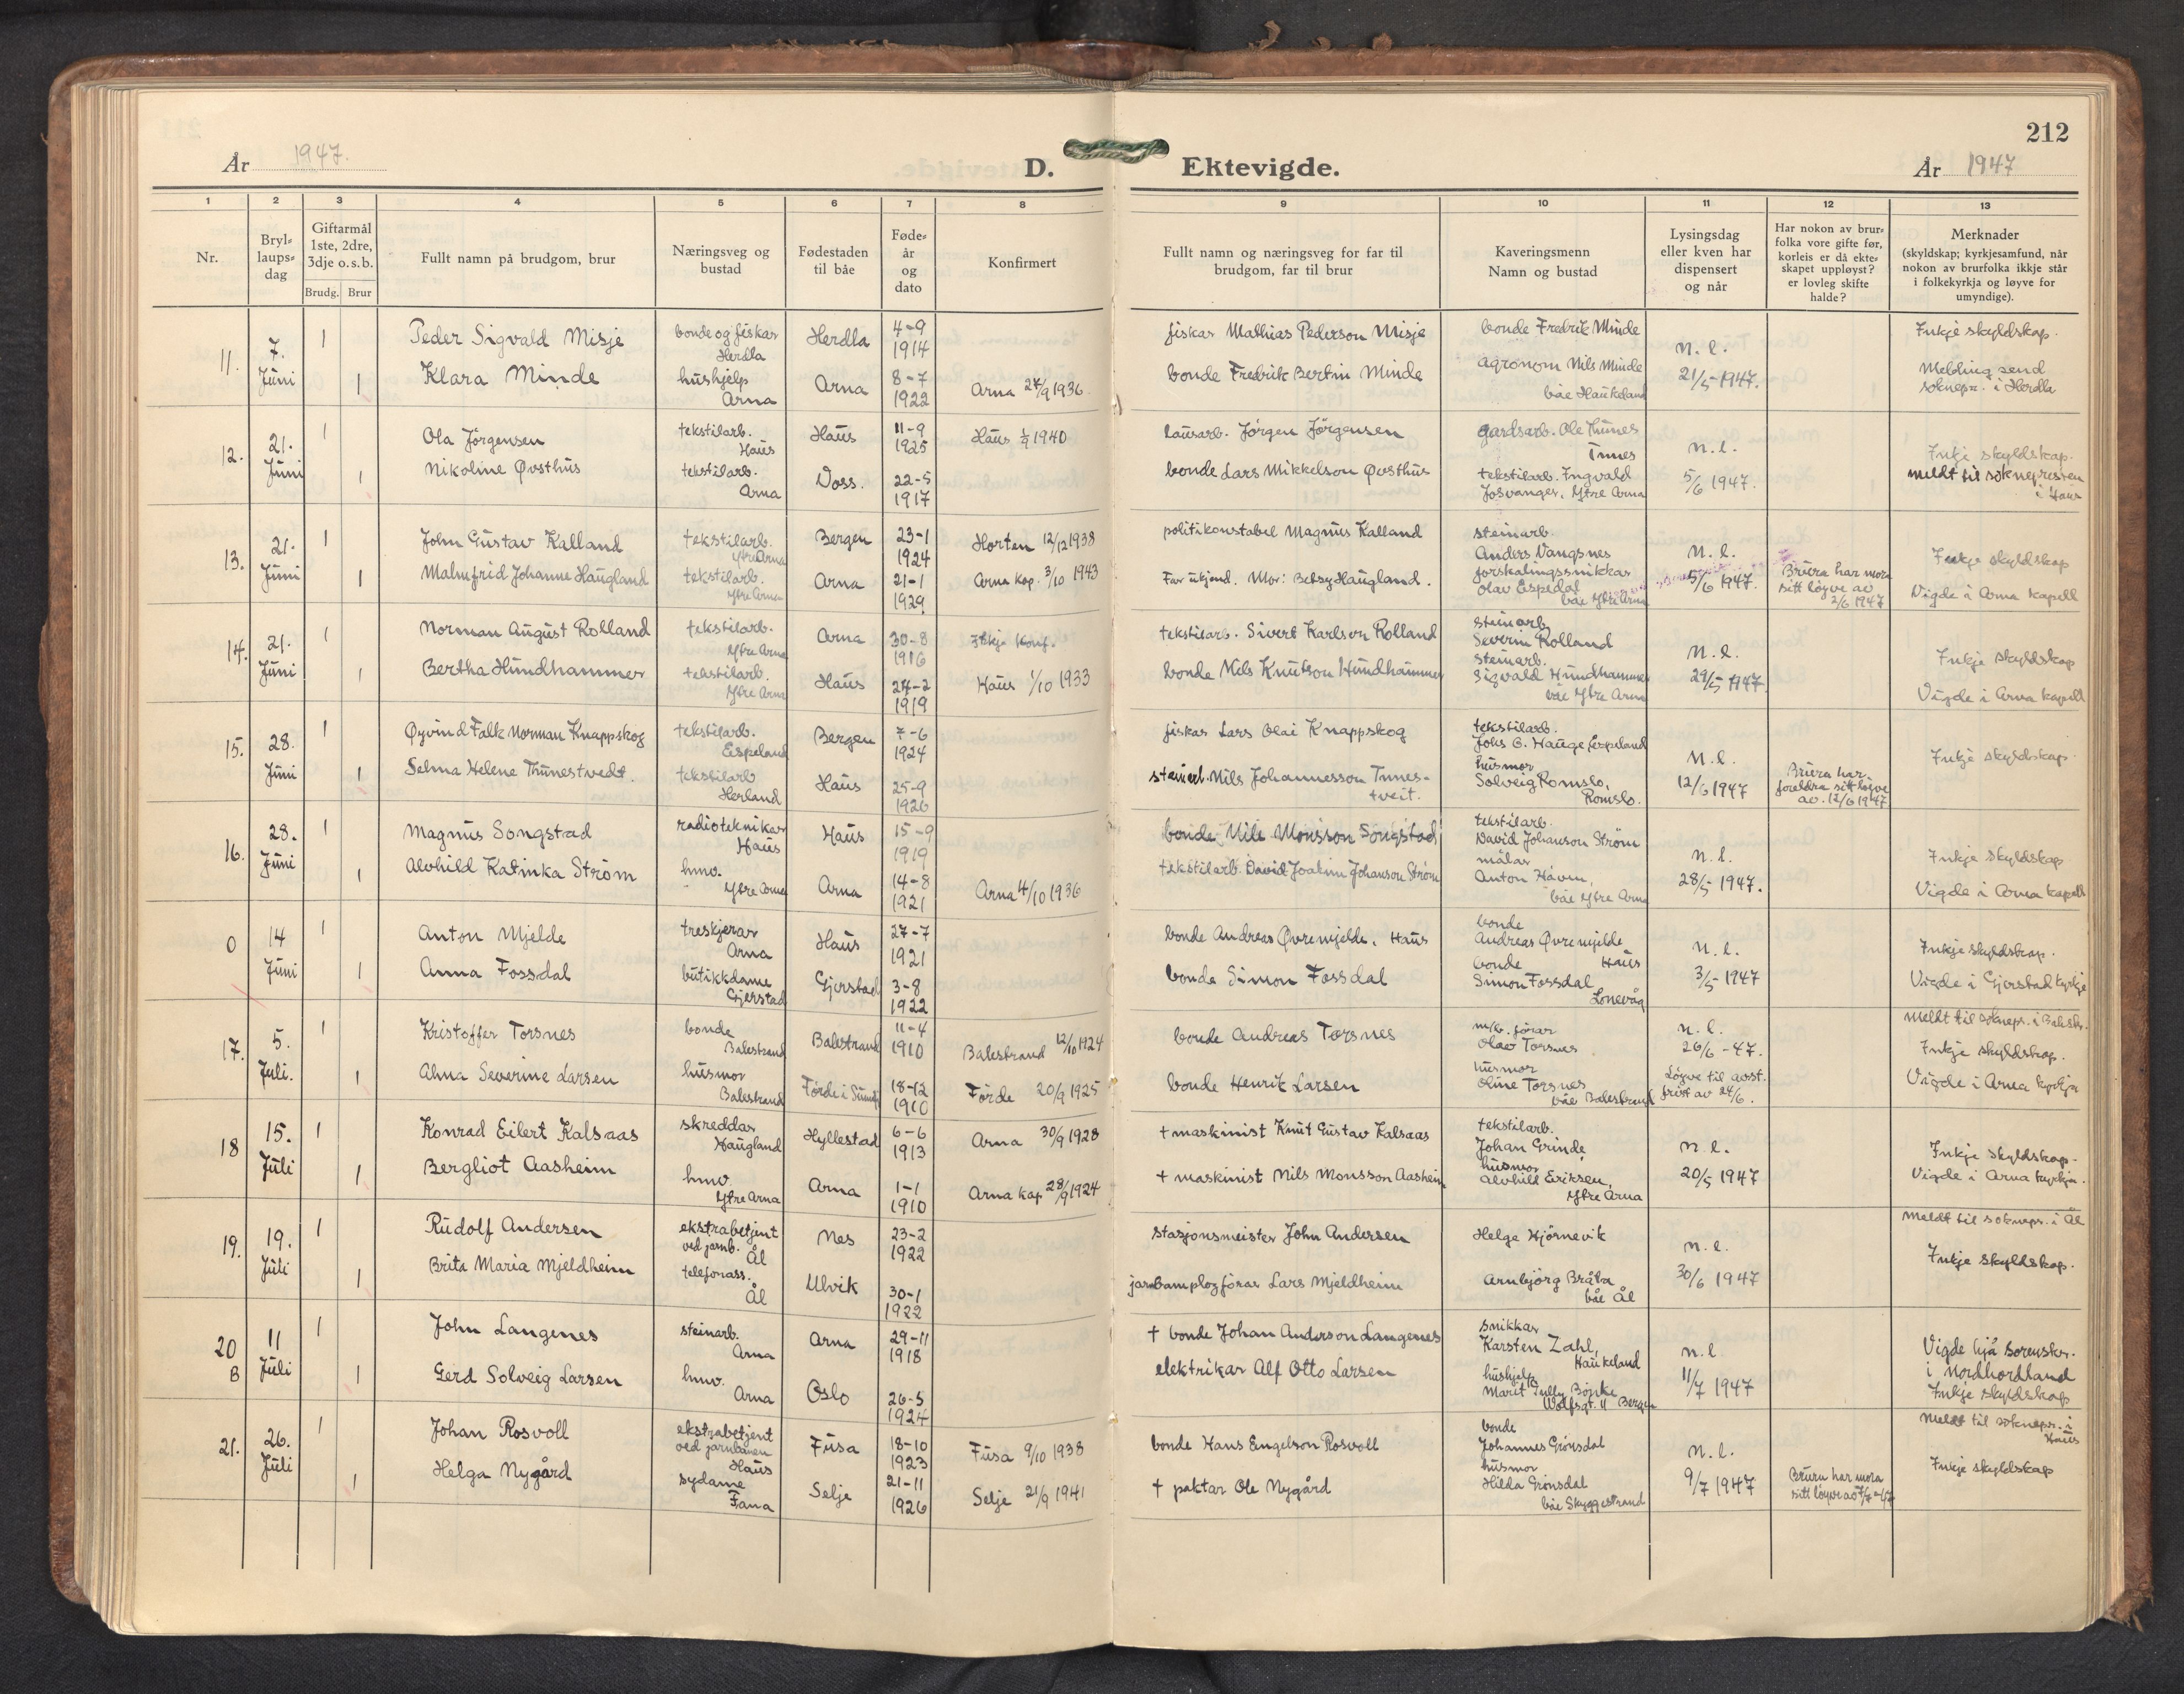 212
År 1947. D. Ektevigde. År 1947
1 2 3 4 5 6 7 8 9 10 11 12 13
Nr.
Bryl-
laups-
dag
Giftarmål
1ste, 2dre,
3dje o.s.b.
Brudg. Brur
Fullt namn på brudgom, brur
Næringsveg og
bustad
Fødestaden
til båe
Føde-
år
og
dato
Konfirmert
Fullt namn og næringsveg for far til
brudgom, far til brur
Kaveringsmenn
Namn og bustad
Lysingsdag
eller kven har
dispensert
og når
Har nokon av brur-
folka vore gifte før,
korleis er då ekte-
skapet uppløyst?
er lovleg skifte
halde?
Merknader
(skyldskap; kyrkjesamfund, når
nokon av brurfolka ikkje står
i folkekyrkja og løyve for
umyndige).
11. 7. Juni
1 Peder Sigvald Misje bonde og fiskar Herdla Herdla 4-9 1914 fiskar Mathias Pederson Misje bonde Fredrik Minde n. l. Inkje skyldskap.
1 Klara Minde hushjelp Arna Arna 8-7 1922 Arna 27/9 1936 bonde Fredrik Bertin Minde agronom Nils Minde båe Haukeland 21/5-1947. Melding send soknepr. i Herdla
12. 21. Juni
1 Ola Jörgensen tekstilarb. Haus Haus 11-9 1925 Haus 1940 lausarb. Jörgen Jörgensen gardsarb. Ole Tunes Tunes n. l. Inkje skyldskap.
1 Nikoline Øvsthus tekstilarb. Arna Voss. 22-5 1917 bonde Lars Mikkelson Øvsthus tekstilarb. Ingvald Josvanger, Ytre Arna 5/6 1947. meldt til soknepresten i Haus
13. 21. Juni
1 John Gustav Kalland tekstilarb. Ytre Arna Bergen 23-1 1924 Horten 12/12 1938 politikonstabel Magnus Kalland steinarb. Anders Vangsnes n. l. Inkje skyldskap
1 Malmfrid Johanne Haugland tekstilarb. Ytre Arna Arna 21-1 1929 Arna kap. 3/10 1943 Far ukjend. Mor: Betsy Haugland. forskalingssnikkar Olav Espedal båe Ytre Arna 5/6 1947. Brura har mora sitt löyve av 2/6 1947 Vigde i Arna kapell
14. 21. Juni
1 Norman August Rolland tekstilarb. Ytre Arna Arna 30-8 1916 Ikkje konf. tekstilarb. Sivert Karlson Rolland steinarb. Severin Rolland n. l. Inkje skyldskap
1 Bertha Hundhammer tekstilarb. Ytre Arna Haus 24-2 1919 Haus 1/10 1933 bonde Nils Knutson Hundhammer steinarb. Sigvald Hundhammer båe Ytre Arna 29/5 1947. Vigde i Arna kapell
15. 28. Juni
1 Øyvind Falk Norman Knappskog tekstilarb. Espeland Bergen 7-6 1924 fiskar Lars Olai Knappskog tekstilarb. Johs G. Hauge Espeland n. l. Inkje skyldskap.
1 Selma Helene Thunestvedt. tekstilarb Herland Haus 25-9 1926 steinarb. Nils Johannesson Tunes-tveit. husmor Solveig Romslo, Romslo. 12/6 1947 Brura har foreldra sitt løyve av. 12/6 1947
16. 28. Juni
1 Magnus Songstad radioteknikar Haus Haus 15-9 1919 bonde Nils Monsson Songstad tekstilarb. David Johanson Ström n. l. Inkje skyldskap
1 Alvhild Katinka Ström hmv. Ytre Arna Arna 14-8 1921 Arna 4/10 1936 tekstilarb. David Joakim Johanson Ström målar Anton Håvin, båe Ytre Arna 28/5 1947. Vigde i Arna kapell
0 14 Juni
1 Anton Mjelde treskjerar Arna Haus 27-7 1921 bonde Andreas Øvremjelde, Haus bonde Andreas Øvremjelde Haus n. l. Inkje skyldskap.
1 Anna Fossdal butikkdame Gjerstad Gjerstad 3-8 1922 bonde Simon Fossdal bonde Simon Fossdal Lonevåg 3/5-1947 Vigde i Gjerstad kyrkje
17. 5. Juli.
1 Kristoffer Torsnes bonde Balestrand Balestrand 11-4 1910 Balestrand 12/10 1924 bonde Andreas Torsnes m/b. förar Olav Torsnes n. l. 26/6-47. Meldt til soknepr. i Balestr. Inkje skyldskap.
1 Alma Severine Larsen husmor Balestrand Førde i Sunnfj 18-12 1910 Førde 20/9 1925 bonde Henrik Larsen husmor Oline Torsnes båe Balestrand Løyve til avst. frist av 24/6. Vigde i Arna kyrkja
18 15. Juli
1 Konrad Eilert Kalsaas skreddar Haugland Hyllestad 6-6 1913 Arna 30/9 1928 + maskinist Knut Gustav Kalsaas tekstilarb. Johan Grinde n. l. Inkje skyldskap-
1 Bergliot Aasheim hmv. Ytre Arna Arna 1-1 1910 Arna kap 28/9 1924 + maskinist Nils Monsson Aasheim husmor Alvhild Eriksen, Ytre Arna 20/5 1947 Vigde i Arna kyrkja.
19. 19. Juli
1 Rudolf Andersen ekstrabetjent ved jarnb. Ål Nes 23-2 1922 stasjonsmeister John Andersen Helge Hjörnevik n. l. Meldt til soknepr. i Ål
1 Brita Maria Mjeldheim telefonass. Ål Ulvik 30-1 1922 Lars Mjeldheim Arnbjörg Bråta båe Ål 30/6 1947 Inkje skyldskap.
20 B 11 Juli
1 John Langenes steinarb. Arna Arna 29-11 1918 + bonde Johan Anderson Langenes snikkar Karsten Zahl, Haukeland n. l Vigde hjå sorenskr. i Nordhordland
1 Gerd Solveig Larsen hmv. Arna Oslo 26-5 1924 elektrikar Alf Otto Larsen hushjelp Marit Wolfsgt. 11 Bergen 11/7 1947 Inkje skyldskap
21. 26. Juli
1 Johan Rosvoll ekstrabetjent ved jarnbanen Haus Fusa 18-10 1923 Fusa 9/10 1938 bonde Hans Engelson Rosvoll bonde Johannes Grönsdal n. l. Meldt til soknepr. i Haus
1 Helga Nygård sydame Fana Selje 21-11 1926 Selje 21/9 1941 + paktar Ole Nygård husmor Hilda Grönsdal båe Skyggestrand 9/7 1947 Bruru har mora sitt löyve av Inkje skyldskap